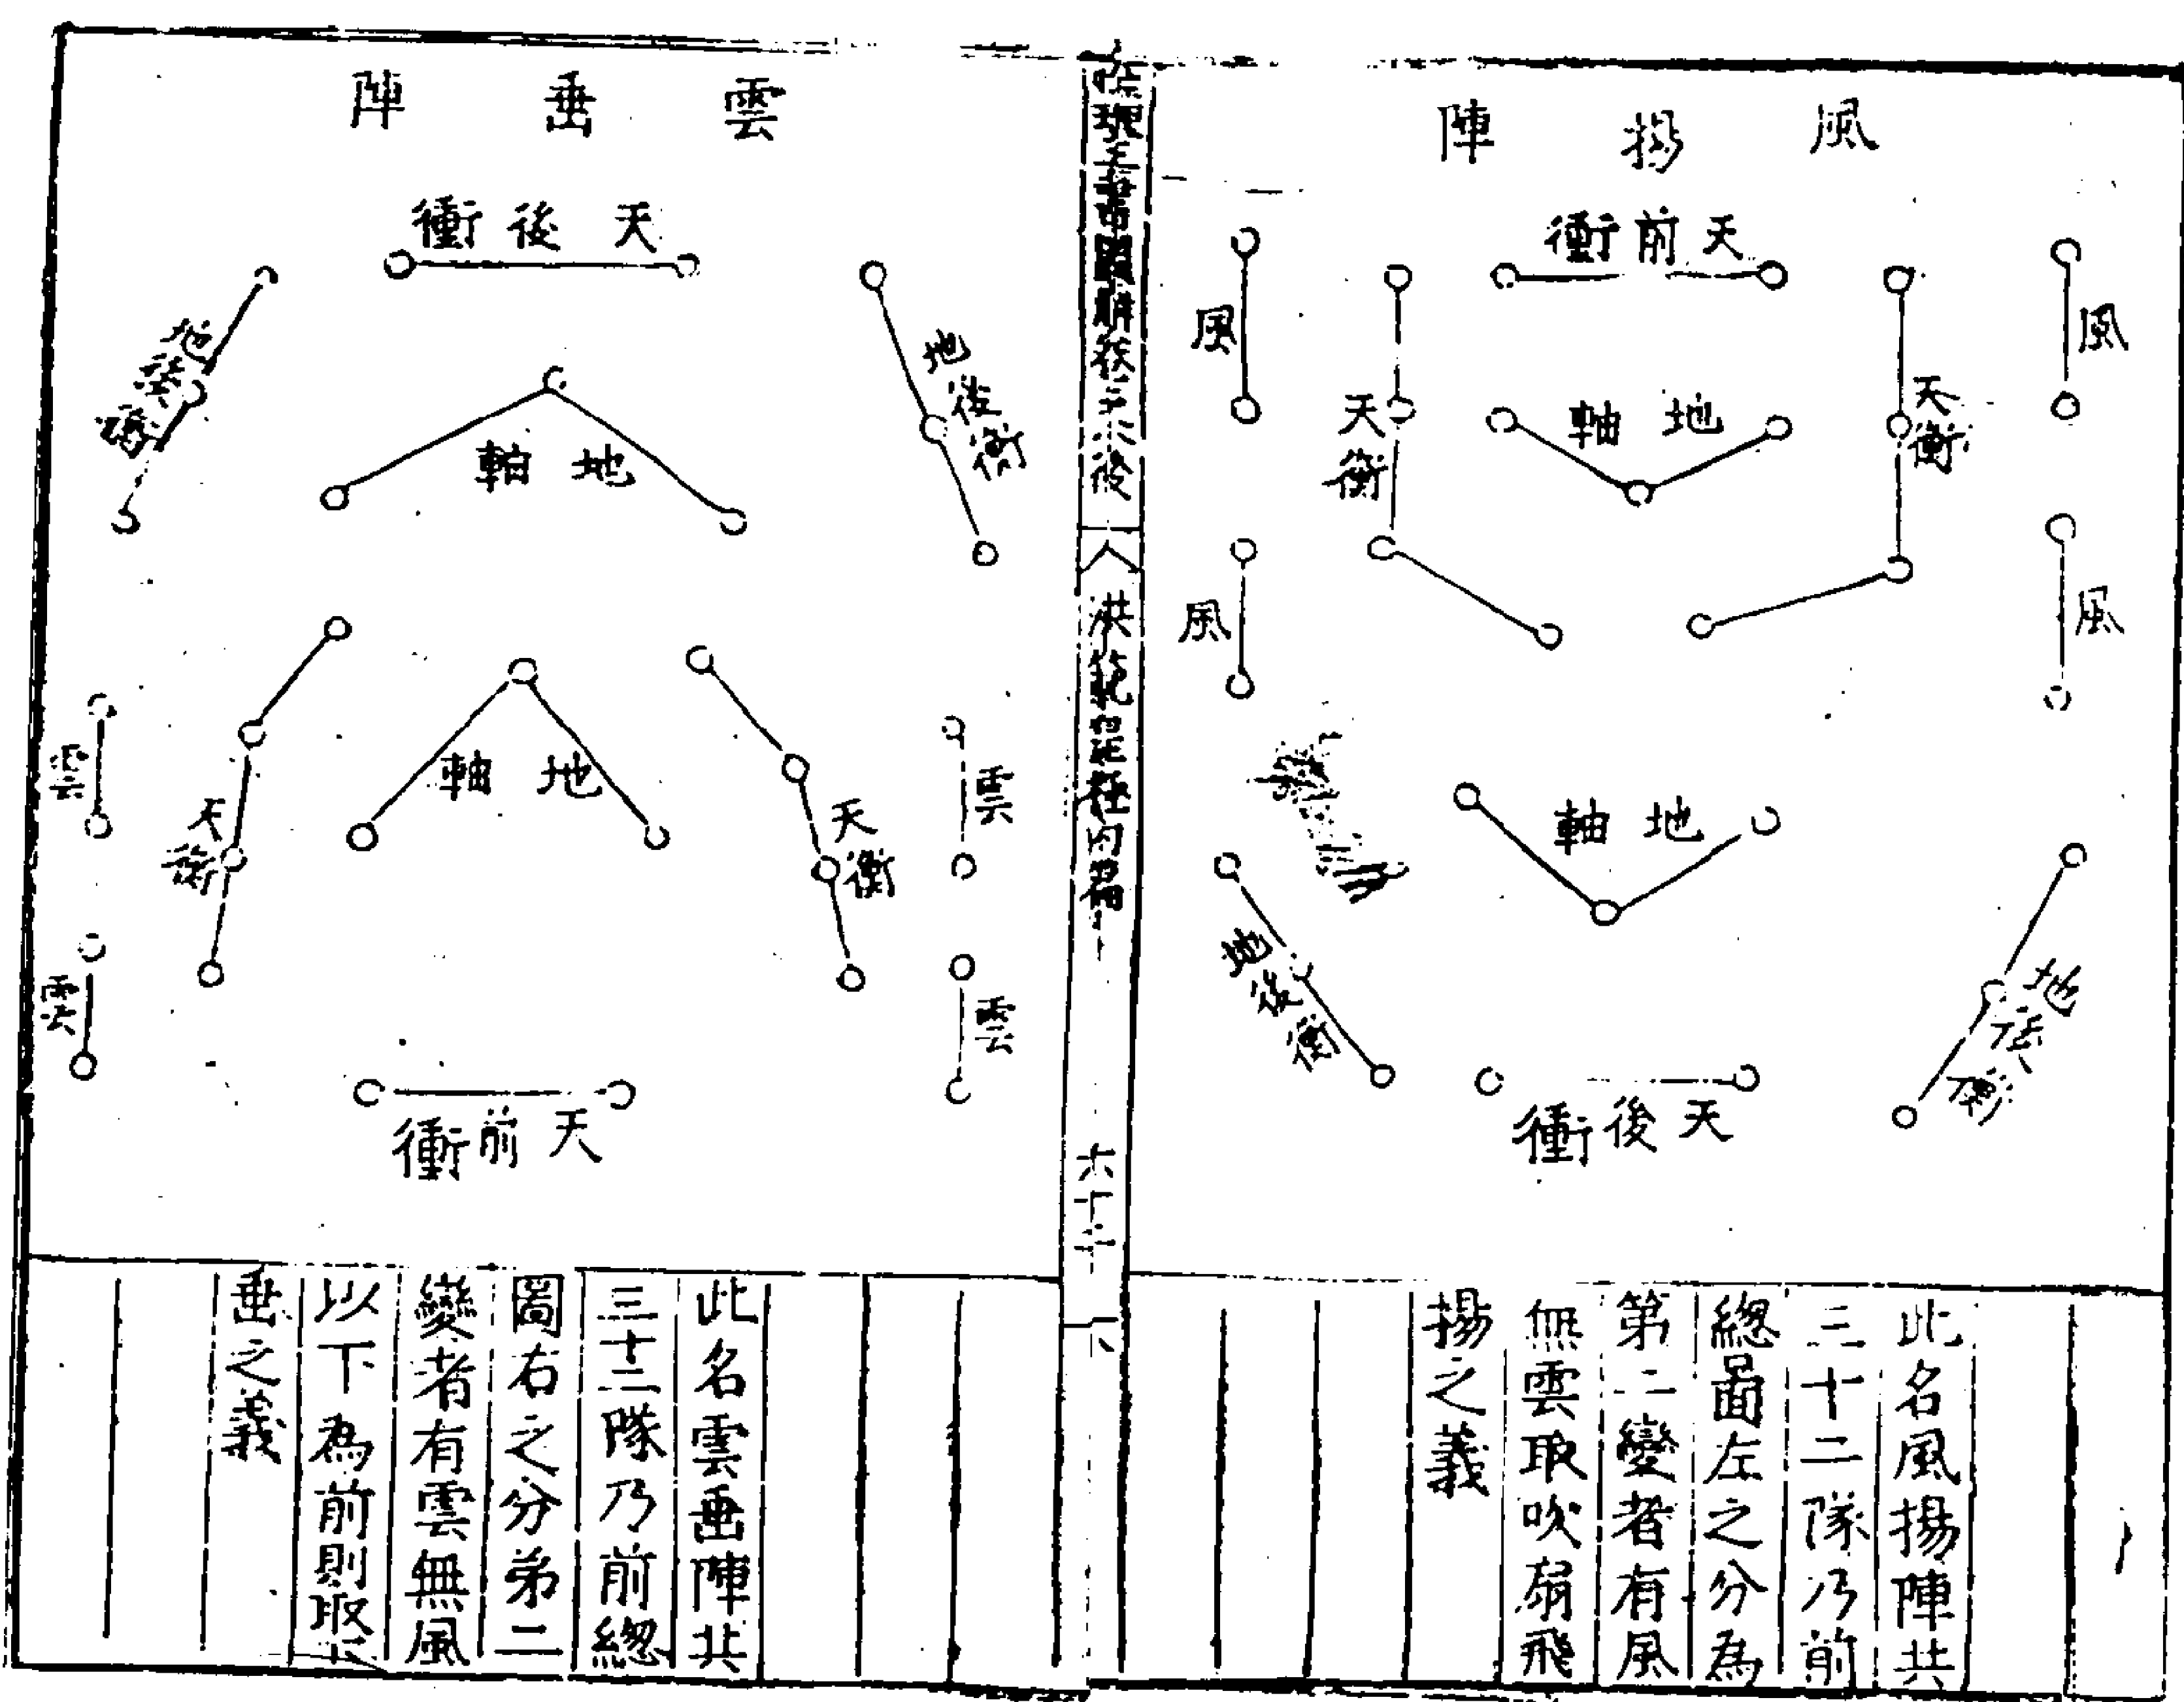 風揚陣
天前衝
風
風
天衡
天衡
地軸
風
風
地軸
地後衡
地後衡
天後衝
此名風揚陣共
三十二隊乃前
總圖左之分為
第二變者有風
無雲取吹扇飛
揚之義
洪範皇極內篇
雲垂陣
天後衝
地後衡
地軸
地軸
天衡
天衡
雲
雲
雲
雲
天前衝
此名雲垂陣共
三十二隊乃前總
圖右之分第二
變者有雲無風
以下為前則取下
垂之義